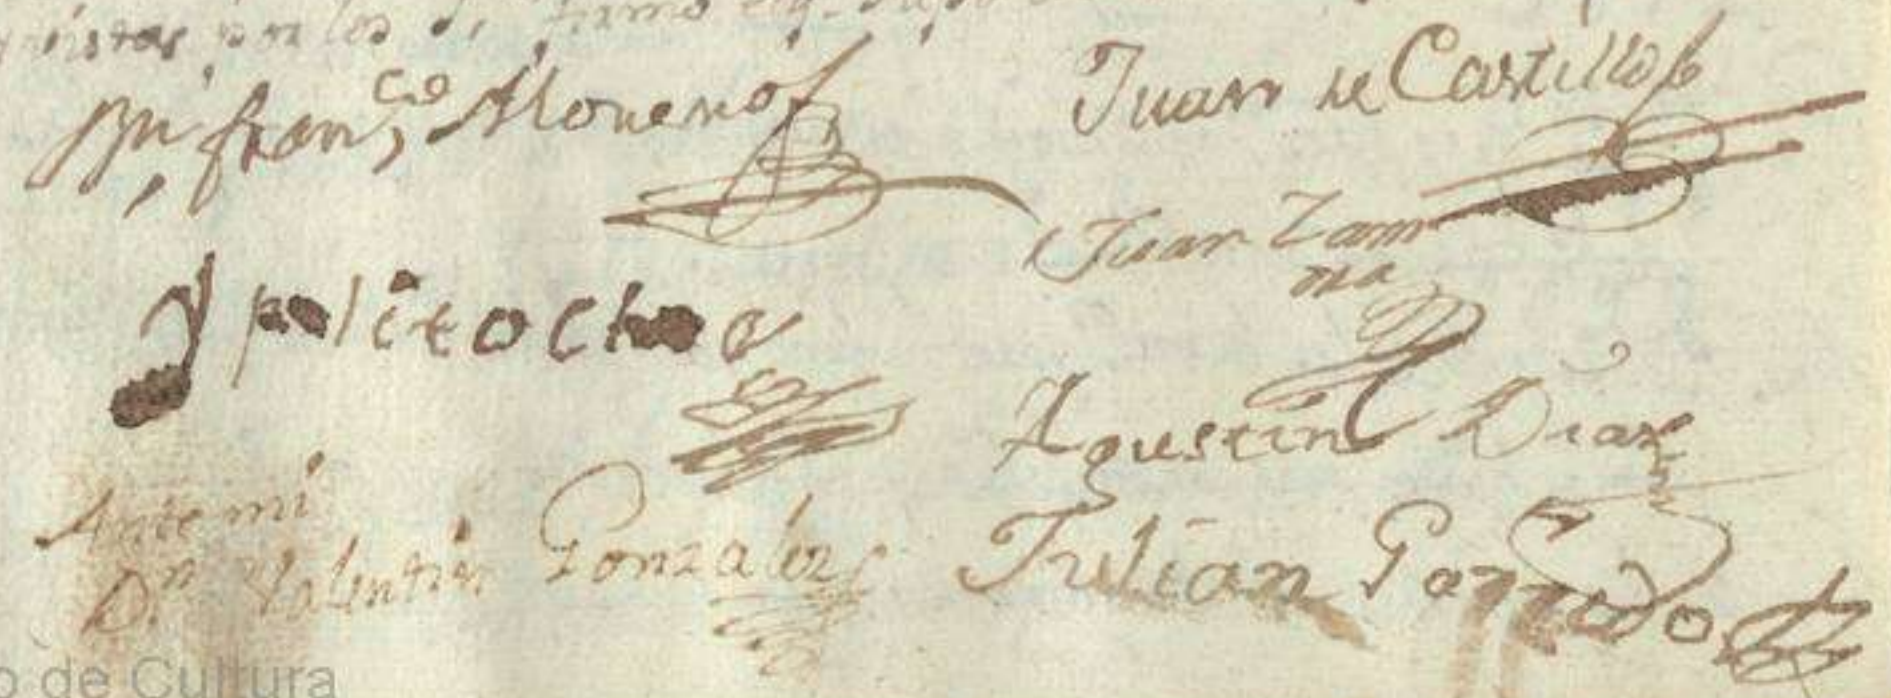 por los
Bn. franco, Moreno
Juan de Castillo
Juan Zam
ora
Ypolito
Agustin Diaz
Ante mi
Dn Valentin Gonzalez
Julian Garrido
o de Cultura